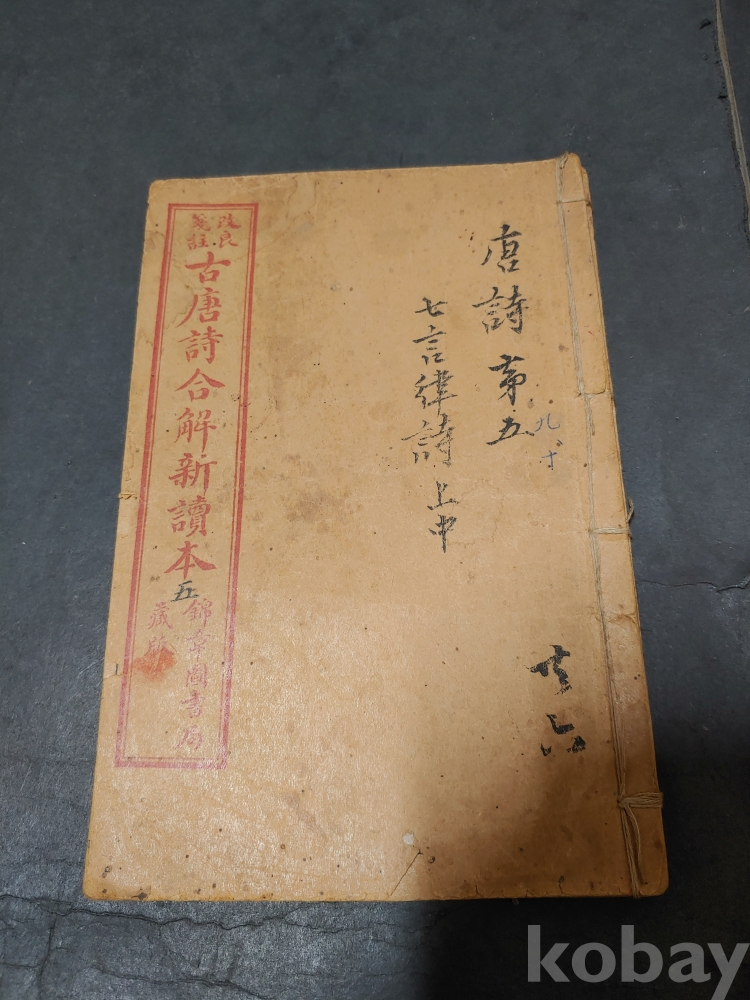 唐詩第五
九十
七言律詩上中
共六
改良
箋註
古唐詩合解新讀本
五
錦章圖書局
藏版
kobay